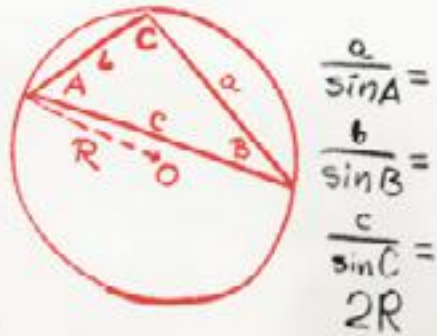 C
b
a
A
C
B
R
O
a
sinA =
b
sinB =
c
sinC =
2R